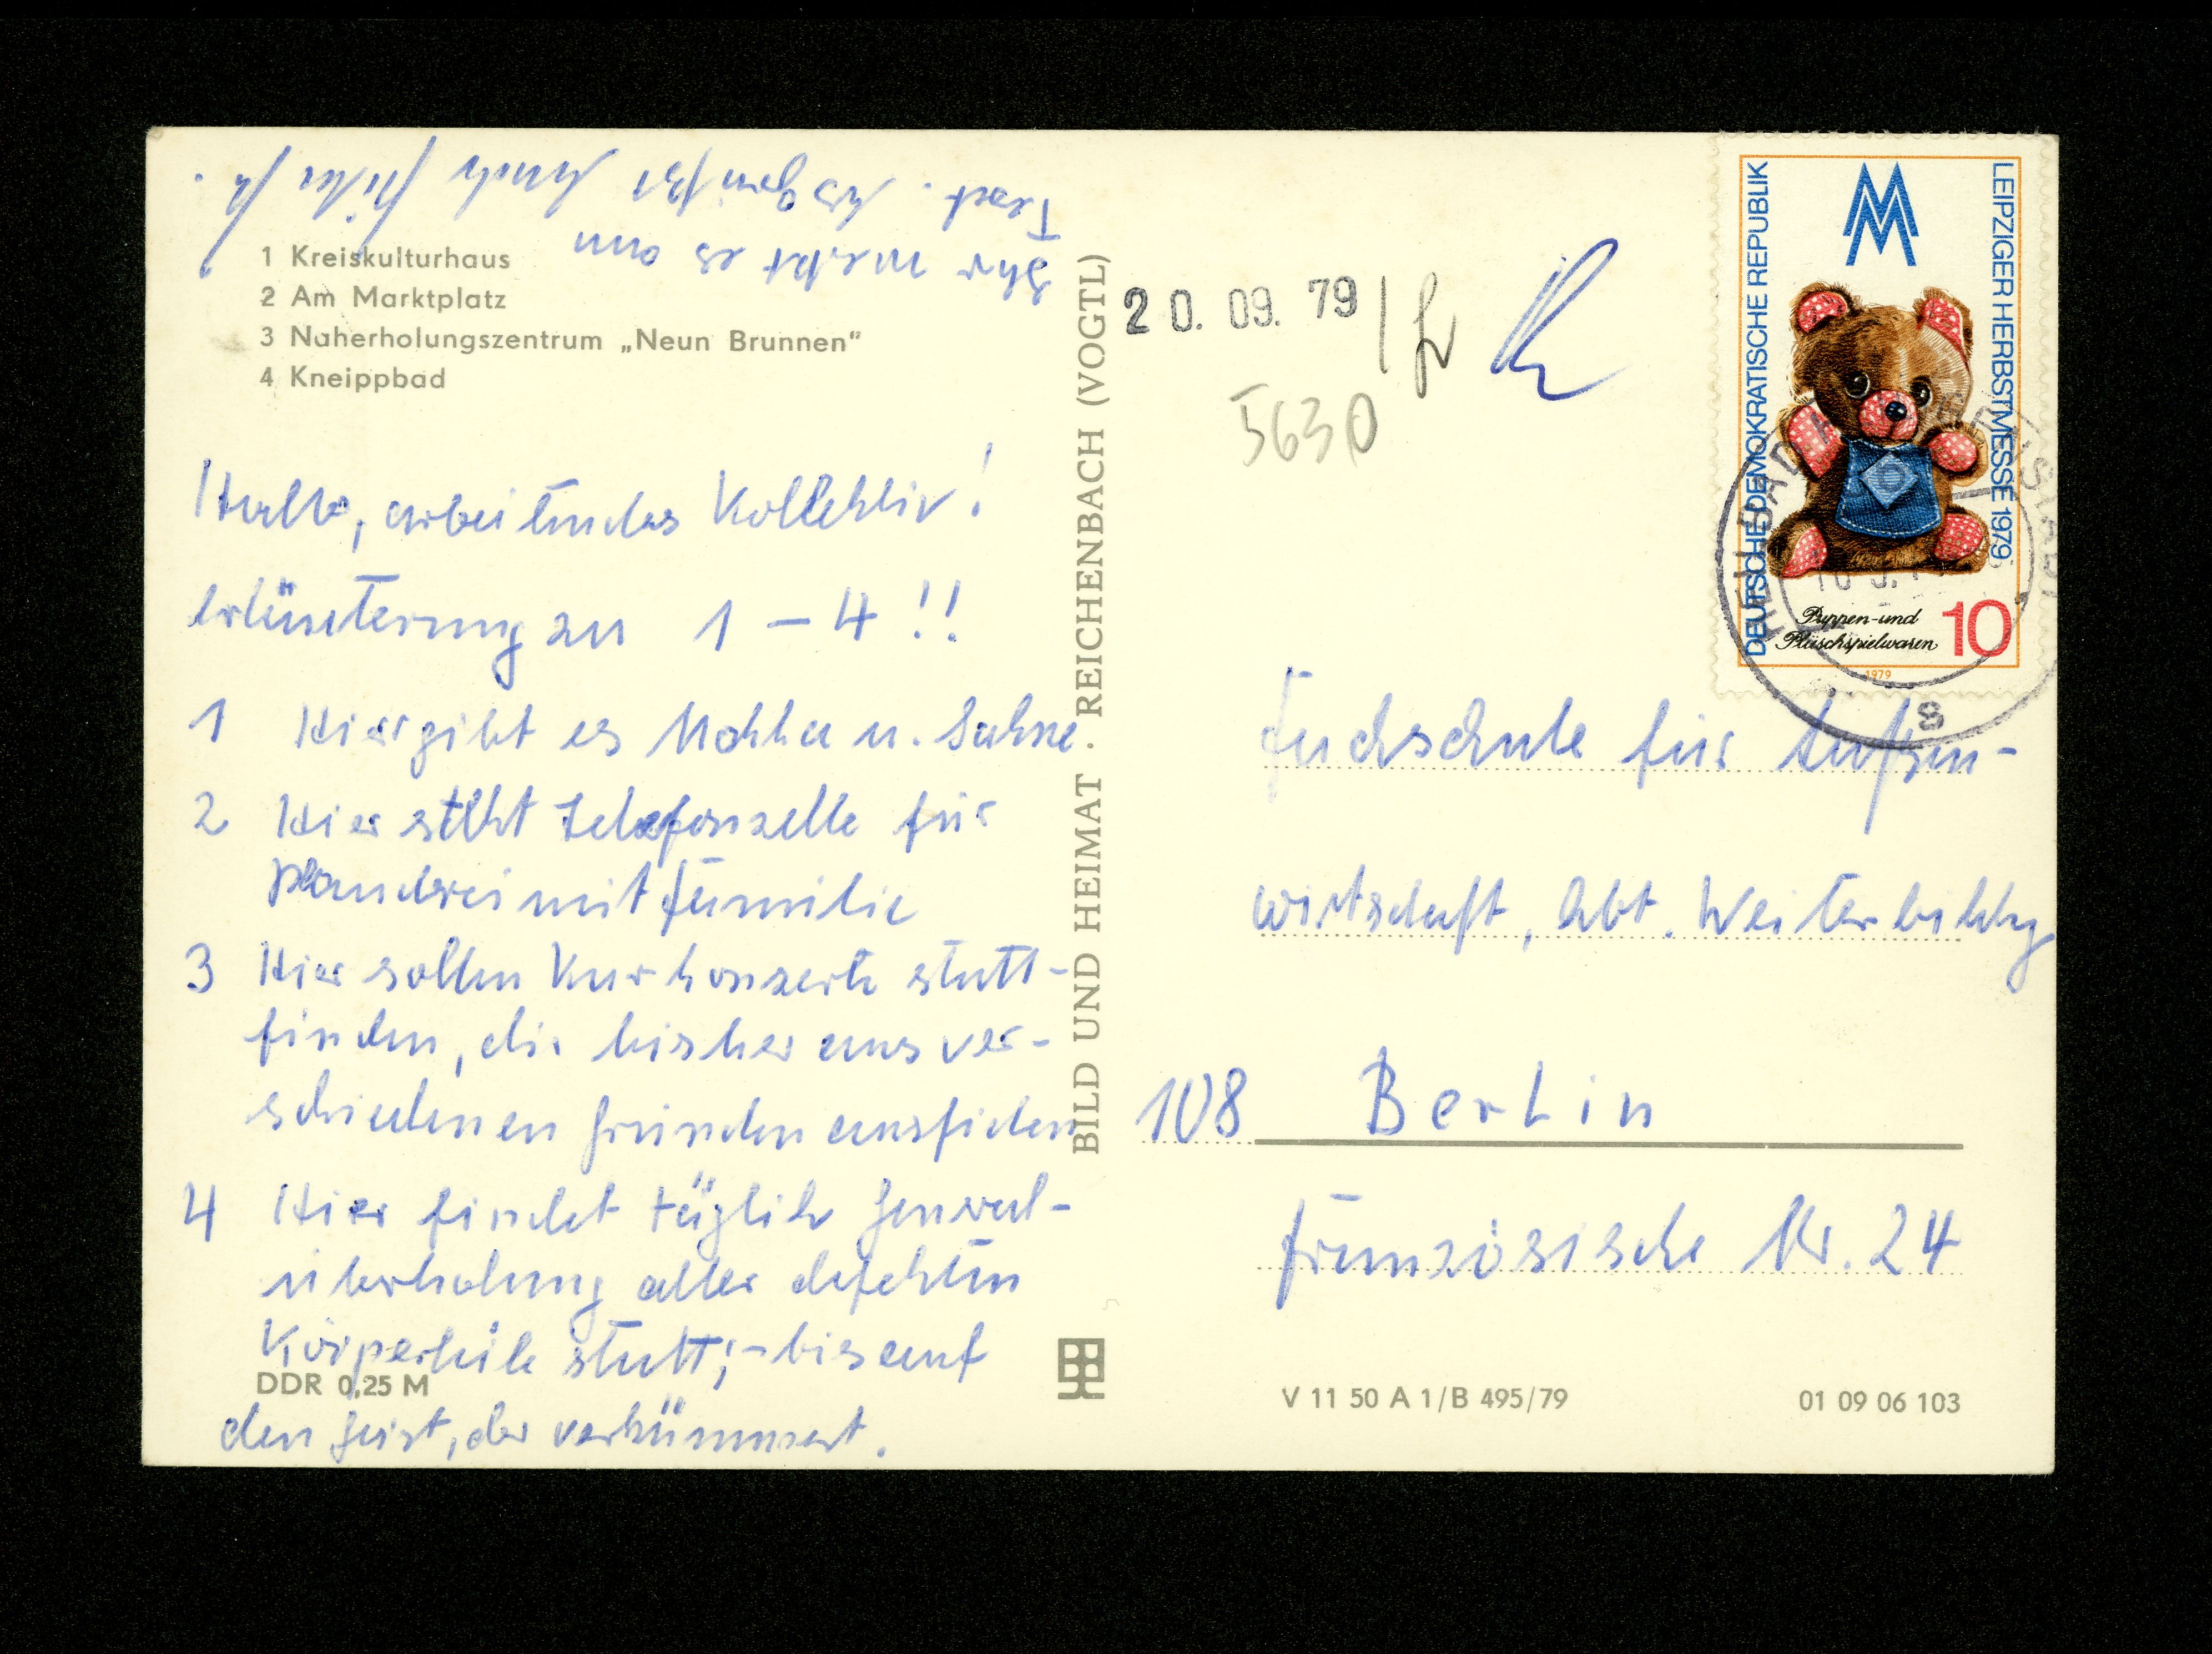 1 Kreiskulturhaus
2 Am Marktplatz
3 Naherholungszentrum „Neun Brunnen“
4 Kneippbad
Hallo, arbeitendes Kollektiv!
Erläuterung zu 1 – 4 !!
1 Hier gibt es Mokka u. Sahne
2 Hier steht Telefonzelle für
Plauderei mit Familie
3 Hier sollen Kurkonzerte statt-
finden, die bisher aus ver-
schiedenen Gründen ausfielen
4 Hier findet täglich General-
überholung aller defekten
Körperteile statt; – bis auf
den Geist, der verkümmert.
Ihr merkt es am
Text. Es grüßt
DDR 0,25 M
BILD UND HEIMAT . REICHENBACH (VOGTL)
20. 09. 79
5630
DEUTSCHE DEMOKRATISCHE REPUBLIK
LEIPZIGER HERBSTMESSE 1979
MM
Puppen- und
Plüschspielwaren
10
1979
HEILBAD HEILIGENSTADT
s
Fachschule für Außen-
wirtschaft, Abt. Weiterbildg
108 Berlin
Französische Nr. 24
V 11 50 A 1/B 495/79
01 09 06 103